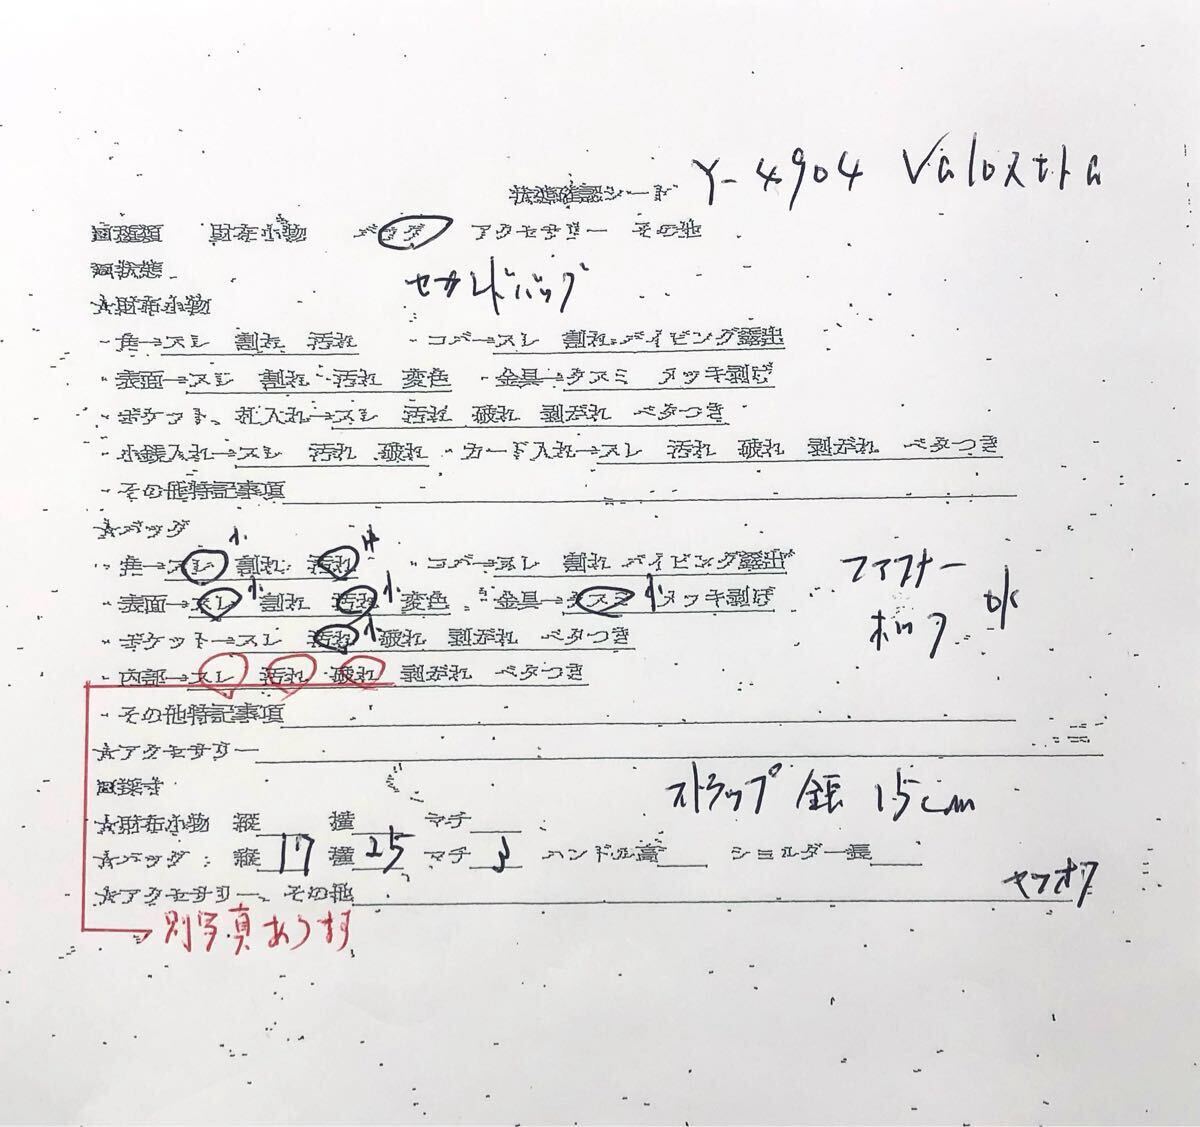 Y-4904 Valoストra
状態確認シート
□種類 財布小物 バッグ アクセサリー その他
□状態
セカンドバッグ
★財布小物
・角→スレ 割れ 汚れ ・コバ→スレ 割れ パイピング露出
・表面→スレ 割れ 汚れ 変色 ・金具→クスミ メッキ剥げ
・ポケット、札入れ→スレ 汚れ 破れ 剥がれ ベタつき
・小銭入れ→スレ 汚れ 破れ ・カード入れ→スレ 汚れ 破れ 剥がれ ベタつき
・その他特記事項
★バッグ
・角→スレ 小 割れ 汚れ 中 ・コバ→スレ 割れ パイピング露出
ファスナー
・表面→スレ 小 割れ 汚れ 小 変色 ・金具→クスミ 小 メッキ剥げ
ホック ok
・ポケット→スレ 汚れ 小 破れ 剥がれ ベタつき
・内部→スレ 汚れ 破れ 剥がれ ベタつき
・その他特記事項
★アクセサリー
□採寸
ストラップ 全長 15cm
★財布小物 縦 横 マチ
★バッグ : 縦 17 横 25 マチ 3 ハンドル高 ショルダー長
ヤフオク
★アクセサリー、その他
別写真あります